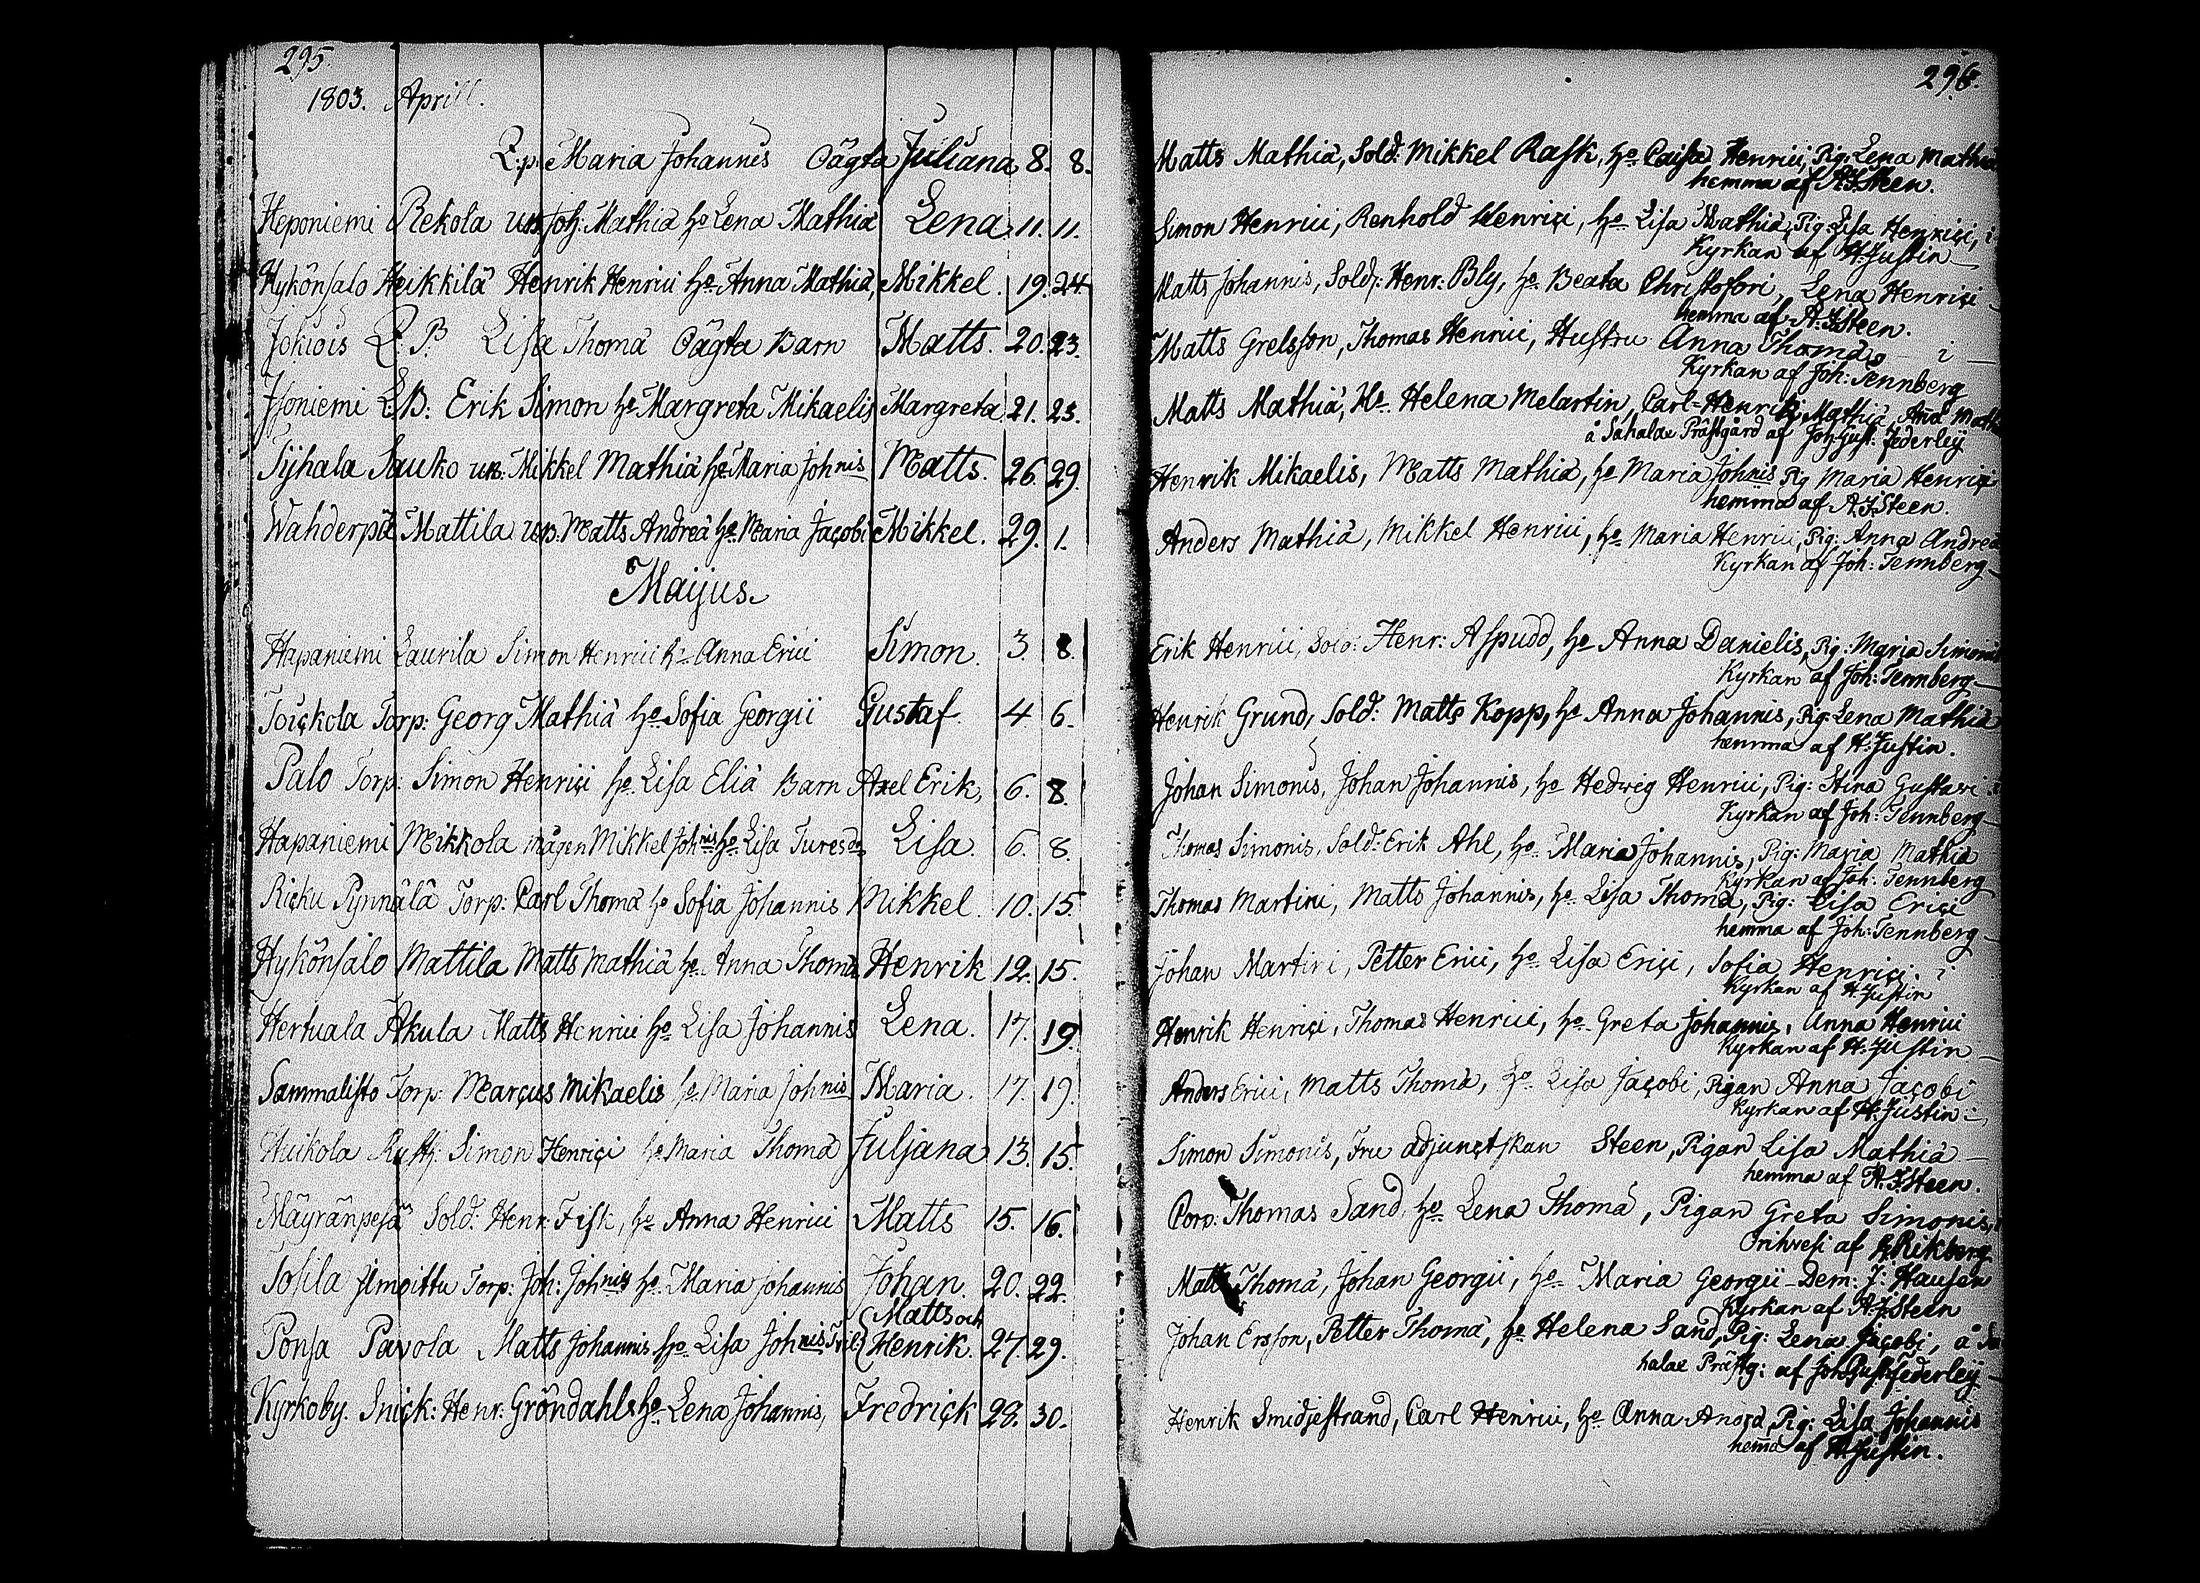 295.
1803. Aprill.
Q:p: Maria Johannis Oägta Juliana 8. 8.
Heponiemi Rekola Joh: Mathiæ ho Lena Mathiæ Lena. 11. 11.
Hykönsalo Heikkilä Henrik Henrici ho Anna Mathiæ, Mikkel. 19. 24
Jokiois Q: P. Lisa Thomæ Oägta Barn Matts. 20. 23.
B: Erik Simon ho Margreta Mikaelis Margreta. 21. 25.
Syhala Sauko Mikkel Mathiæ ho Maria Johnis Matts. 26. 29.
Wahderpä Mattila Matts Andreæ ho Maria Jacobi Mikkel. 29. 1.
Maijus.
Hapaniemi Laurila Simon Henrici ho Anna Erici Simon. 3. 8.
Toickola Torp: Georg Mathiæ ho Sofia Georgii Gustaf 4 6.
Palo Torp: Simon Henrici ho Lisa Eliæ Barn Axel Erik, 6. 8.
Hapaniemi Mikkola mågen Mikkel Johnis ho Lisa Turesdr Lisa. 6. 8.
Ricku Pynnälä Torp: Carl Thomæ ho Sofia Johannis Mikkel. 10. 15.
Hykönsalo Mattila Matts Mathiæ ho Anna Thomæ Henrik 12. 15.
Hertuala Akula Matts Henrici ho Lisa Johannis Lena. 17. 19.
Sammalisto Torp: Marcus Mikaelis ho Maria Johnis Maria. 17. 19.
Simon Henrici ho Maria Thomæ Juljana 13. 15.
Mäyränpesä Sold: Henr: Fisk, ho Anna Henrici Matts 15. 16.
Torp: Joh: Johnis ho Maria Johannis Johan. 20. 22.
Matts och
Ponsa Pavola Matts Johannis ho Lisa Johnis Henrik. 27. 29.
Kyrkoby. Snick: Henr: Gröndahl ho Lena Johannis, Fredrick 28. 30.
296.
Matts Mathiæ, Sold: Mikkel Rask, ho Caisa Henrici, Pig: Lena Mathiæ
hemma af A.J.Steen.
Simon Henrici, Renhold Henrici, ho Lisa Mathiæ, Pig: Lisa Henrici, i
Kyrkan af H.Justin
Matts Johannis, Sold: Henr: Bly, ho Beata Christofori, Lena Henrici
hemma af A.J.Steen.
Matts Grelsson, Thomas Henrici, Hustru Anna Thomæ i
Kyrkan af Joh: Tennberg
Matts Mathiæ, Ho Helena Melartin, Carl-Henrik Mathiæ,
å Sahalax Prästgård af Joh: Gust: Federley
Henrik Mikaelis, Matts Mathiæ, ho Maria Johnis Pig Maria Henrici
hemma af A.J.Steen.
Anders Mathiæ, Mikkel Henrici, ho Maria Henrici, Pig: Anna Andreæ
Kyrkan af Joh: Tennberg
Erik Henrici, Sold: Henr: Aspudd, ho Anna Danielis, Pig: Maria Simonis
Kyrkan af Joh: Tennberg
Henrik Grund, Sold: Matts Kopp, ho Anna Johannis, Pig: Lena Mathiæ
hemma af H.Justin.
Johan Simonis, Johan Johannis, ho Hedwig Henrici, Pig: Stina Gustavi i
Kyrkan af Joh: Tennberg
Thomas Simonis, Sold: Erik Ahl, ho Maria Johannis, Pig: Maria Mathiæ
Kyrkan af Joh: Tennberg
Thomas Martini, Matts Johannis, ho Lisa Thomæ, Pig: Lisa Erici
hemma af Joh: Tennberg
Johan Martini, Petter Erici, ho Lisa Erici, Sofia Henrici. i
Kyrkan af H.Justin
Henrik Henrici, Thomas Henrici, ho Greta Johannis, Anna Henrici
Kyrkan af H.Justin
Anders Erici, Matts Thomæ, ho Lisa Jacobi, Pigan Anna Jacobi
Kyrkan af H.Justin
Simon Simonis, Fru adjunctskan Steen, Pigan Lisa Mathiæ
hemma af A.J.Steen.
Corp: Thomas Sand, ho Lena Thomæ, Pigan Greta Simonis, i
Orihvesi af Rikberg
Matts Thomæ, Johan Georgii, ho Maria Georgii Dem: J: Hausen
Kyrkan af A.J.Steen
Johan Ersson, Petter Thomæ, ho Helena Sand, Pig: Lena Jacobi, å Sa
halax Prästg: af Joh: Gust: Federley
Henrik Smidjestrand, Carl Henrici, ho Anna Pig: Lisa Johannis
hemma af H.Justin.